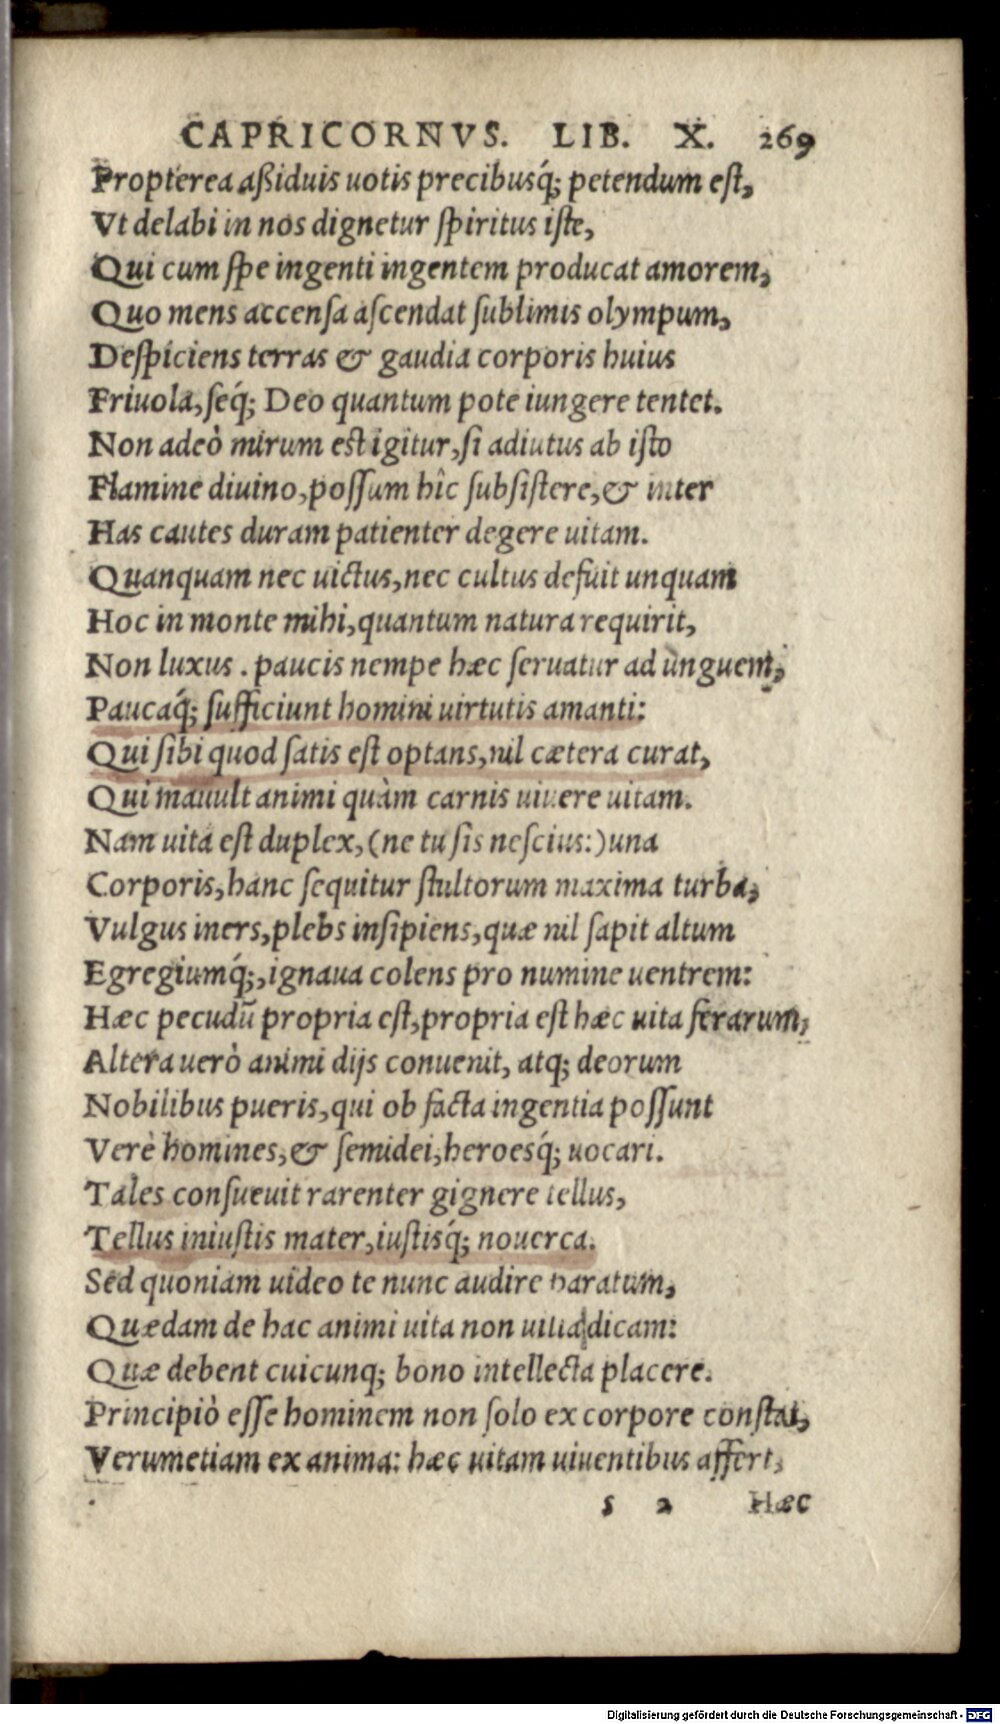 CAPRICORNVS. LIB. X. 269
Propterea aßiduis uotis precibusq́; petendum est,
Vt delabi in nos dignetur spiritus iste,
Qui cum spe ingenti ingentem producat amorem,
Quo mens accensa ascendat sublimis olympum,
Despiciens terras & gaudia corporis huius
Friuola, seq́; Deo quantum pote iungere tentet.
Non adeò mirum est igitur, si adiutus ab isto
Flamine diuino, possum hîc subsistere, & inter
Has cautes duram patienter degere uitam.
Quanquam nec uictus, nec cultus defuit unquam
Hoc in monte mihi, quantum natura requirit,
Non luxus. paucis nempe hæc seruatur ad unguem,
Paucaq́; sufficiunt homini uirtutis amanti:
Qui sibi quod satis est optans, nil cætera curat,
Qui mauult animi quàm carnis uiuere uitam.
Nam uita est duplex, (ne tu sis nescius:) una
Corporis, hanc sequitur stultorum maxima turba,
Vulgus iners, plebs insipiens, quæ nil sapit altum
Egregiumq́;, ignaua colens pro numine uentrem:
Hæc pecudū propria est, propria est hæc uita ferarum,
Altera uerò animi dijs conuenit, atq; deorum
Nobilibus pueris, qui ob facta ingentia possunt
Verè homines, & semidei, heroesq́; uocari.
Tales consueuit rarenter gignere tellus,
Tellus iniustis mater, iustisq́; nouerca.
Sed quoniam uideo te nunc audire paratum,
Quædam de hac animi uita non uilia dicam:
Quæ debent cuicunq; bono intellecta placere.
Principiò esse hominem non solo ex corpore constat,
Verumetiam ex anima: hæc uitam uiuentibus affert,
s 2 Hæc
Digitalisierung gefördert durch die Deutsche Forschungsgemeinschaft - DFG